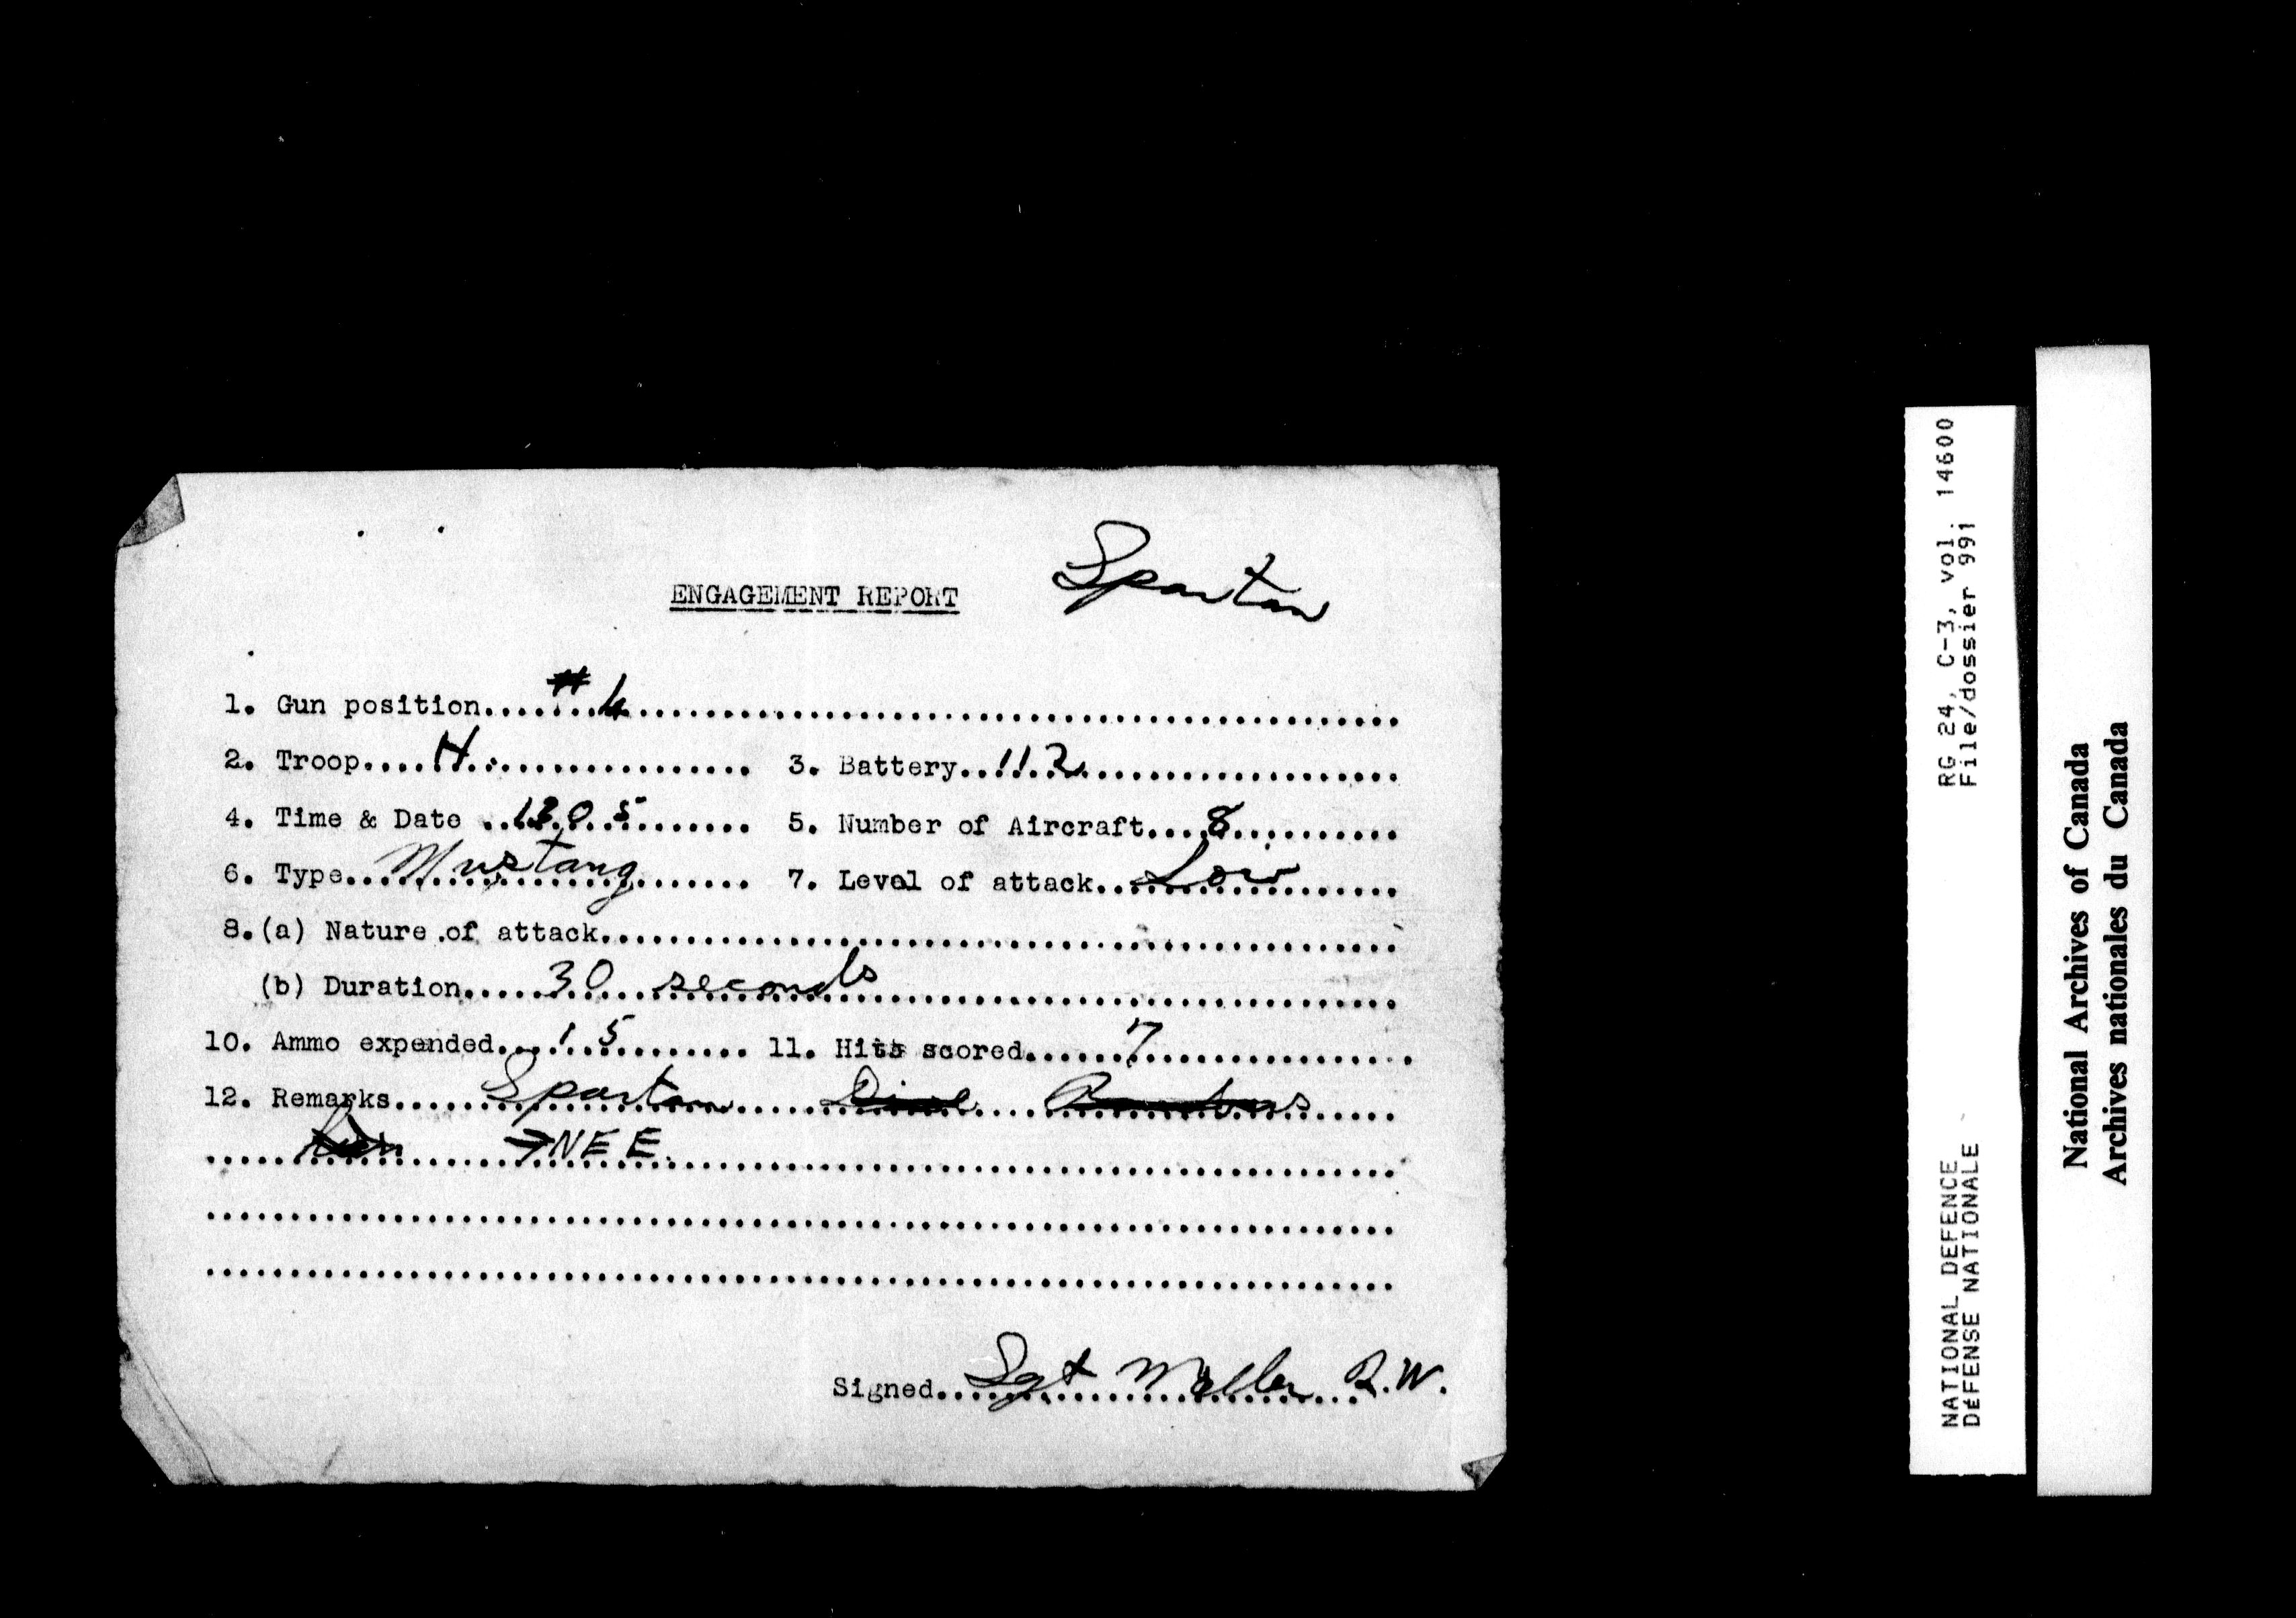 Spartan
ENGAGEMENT REPORT
1. Gun position.......# 4..............................
2. Troop....H.................... 3. Battery...112......................
4. Time & Date ..1305........ 5. Number of Aircraft....8..........
6. Type...Mustang........ 7. Level of attack...Low.........
8.(a) Nature of attack........................................
(b) Duration.....30 seconds..............................
10. Ammo expended....15......... 11. Hits scored......7..............
12. Remarks.....Spartan..........
→NEE
Signed....Sgt Miller R.W.
RG 24, C-3, vol. 14600
File/dossier 991
NATIONAL DEFENCE
DÉFENSE NATIONALE
National Archives of Canada
Archives nationales du Canada